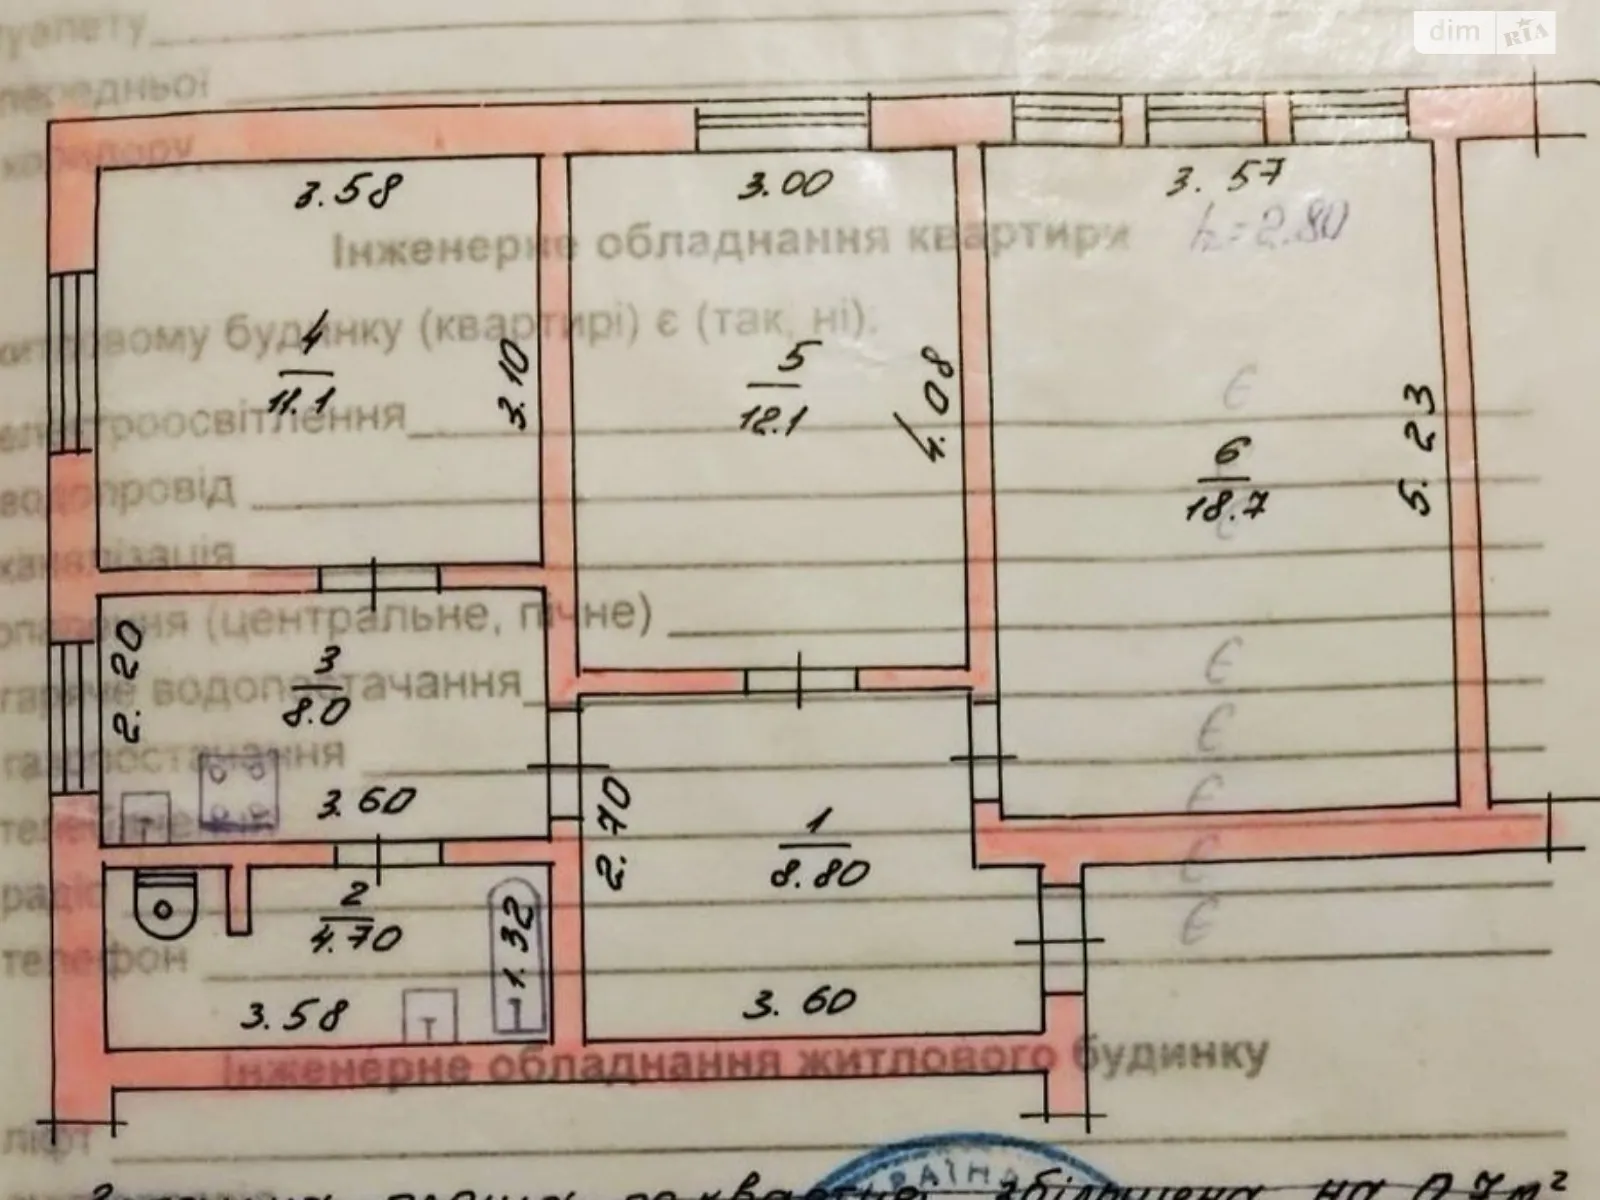 dim RIA
туалету
передньої
коридору
3.58
3.00
3.57
h=2.80
Інженерне обладнання квартири
житловому будинку (квартирі) є (так, ні):
4
11.1
3.10
5
12.1
4.08
6
18.7
5.23
є
електроосвітлення
водопровід
каналізація
опалення (центральне, пічне)
гаряче водопостачання
є
2.20
3
8.0
газопостачання
є
3.60
телебачення
є
2.70
1
8.80
радіо
є
2
4.70
1.32
телефон
є
3.58
3.60
Інженерне обладнання житлового будинку
ліфт
УКРАЇНА
площа квартири збільшена на 0.7м²